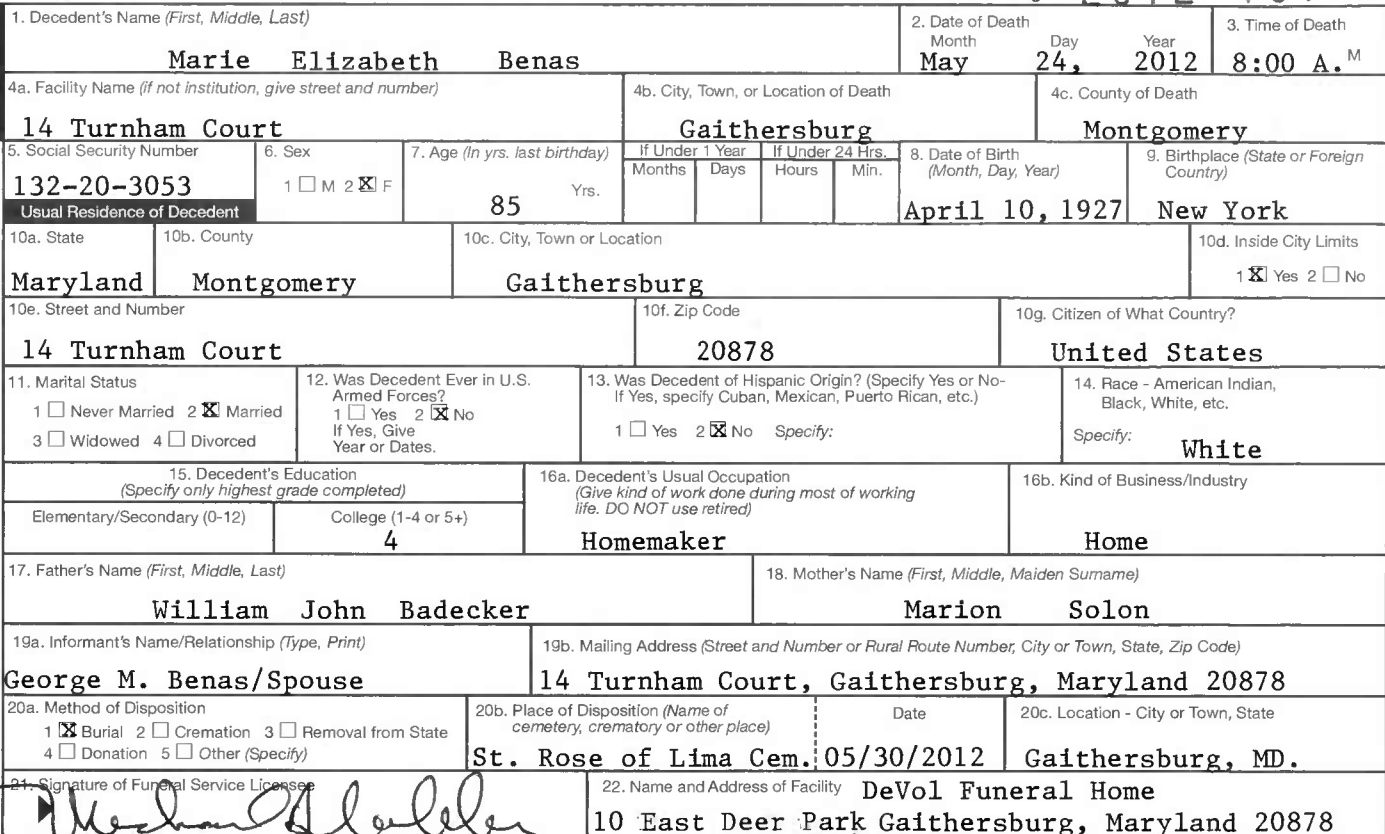 1. Decedent's Name (First, Middle, Last)
Marie Elizabeth Benas
2. Date of Death
Month Day Year
May 24, 2012
3. Time of Death
8:00 A. M
4a. Facility Name (if not institution, give street and number)
14 Turnham Court
4b. City, Town, or Location of Death
Gaithersburg
4c. County of Death
Montgomery
5. Social Security Number
132-20-3053
6. Sex
1 ☐ M 2 ☒ F
7. Age (In yrs. last birthday)
85 Yrs.
If Under 1 Year
Months Days
If Under 24 Hrs.
Hours Min.
8. Date of Birth
(Month, Day, Year)
April 10, 1927
9. Birthplace (State or Foreign
Country)
New York
Usual Residence of Decedent
10a. State
Maryland
10b. County
Montgomery
10c. City, Town or Location
Gaithersburg
10d. Inside City Limits
1 ☒ Yes 2 ☐ No
10e. Street and Number
14 Turnham Court
10f. Zip Code
20878
10g. Citizen of What Country?
United States
11. Marital Status
1 ☐ Never Married 2 ☒ Married
3 ☐ Widowed 4 ☐ Divorced
12. Was Decedent Ever in U.S.
Armed Forces?
1 ☐ Yes 2 ☒ No
If Yes, Give
Year or Dates.
13. Was Decedent of Hispanic Origin? (Specify Yes or No-
If Yes, specify Cuban, Mexican, Puerto Rican, etc.)
1 ☐ Yes 2 ☒ No Specify:
14. Race - American Indian,
Black, White, etc.
Specify: White
15. Decedent's Education
(Specify only highest grade completed)
Elementary/Secondary (0-12)
College (1-4 or 5+)
4
16a. Decedent's Usual Occupation
(Give kind of work done during most of working
life. DO NOT use retired)
Homemaker
16b. Kind of Business/Industry
Home
17. Father's Name (First, Middle, Last)
William John Badecker
18. Mother's Name (First, Middle, Maiden Surname)
Marion Solon
19a. Informant's Name/Relationship (Type, Print)
George M. Benas/Spouse
19b. Mailing Address (Street and Number or Rural Route Number, City or Town, State, Zip Code)
14 Turnham Court, Gaithersburg, Maryland 20878
20a. Method of Disposition
1 ☒ Burial 2 ☐ Cremation 3 ☐ Removal from State
4 ☐ Donation 5 ☐ Other (Specify)
20b. Place of Disposition (Name of
cemetery, crematory or other place)
St. Rose of Lima Cem.
Date
05/30/2012
20c. Location - City or Town, State
Gaithersburg, MD.
21. Signature of Funeral Service Licensee
22. Name and Address of Facility DeVol Funeral Home
10 East Deer Park Gaithersburg, Maryland 20878